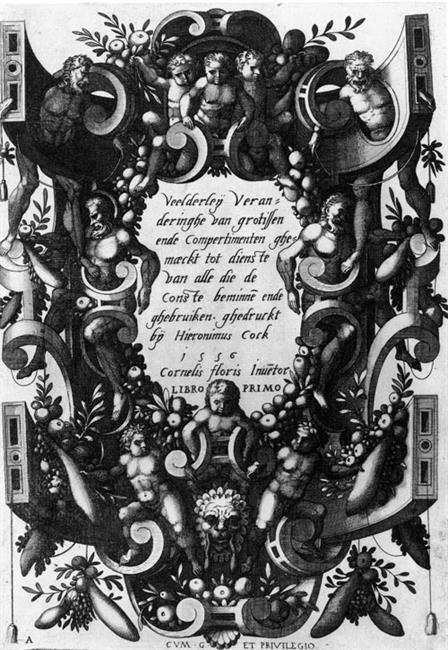 Veelderleÿ Veran=
deringhe van grotissen
ende Compertimenten ghe=
mæckt tot dienste
van alle die de
Conste beminnē ende
ghebruiken. ghedruckt
bÿ Hieronimus Cock
1556
Cornelis floris Invētor
LIBRO PRIMO
A
CVM · G · ET PRIVILEGIO